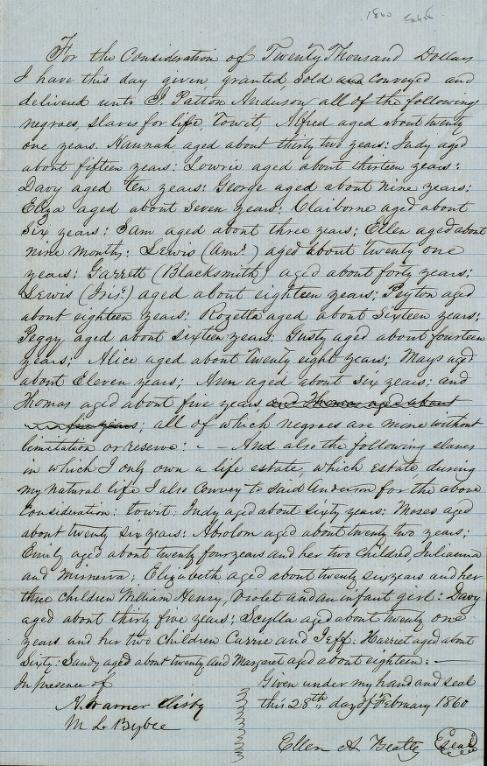 1860
For the Consideration of Twenty Thousand Dollars
I have this day given granted, sold and conveyed and
delivered unto J Patton Anderson all of the following
negroes, slaves for life, Towit, Alfred aged about twenty
one years. Hannah aged about thirty two years: Judy aged
about fifteen years: Lowrie aged about thirteen years:
Davy aged ten years: George aged about nine years;
Eliza aged about seven years: Claiborne aged about
six years: Sam aged about three years; Ellen aged about
nine months; Lewis (Amr.) aged about twenty one
years: Garrett (Blacksmith) aged about forty years;
Lewis (Tris.) aged about eighteen years; Peyton aged
about eighteen years; Rozetta aged about sixteen years;
Peggy aged about sixteen years; Gusty aged about fourteen
years; Alice aged about twenty eight years; Mays aged
about Eleven years; Ann aged about six years; and
Thomas aged about five years and Thomas aged about
five years; all of which negroes are mine without
limitation or reserve: - - And also the following slaves
in which I only own a life estate, which estate, during
my natural life I also Convey to said Anderson for the above
Consideration: towit. Judy aged about sixty years; Moses aged
about twenty six years: Absolom aged about twenty two years;
Emily aged about twenty four years and her two children Julieanna
and Minerva; Elizabeth aged about twenty six years and her
three children William Henry, Violet and an infant girl: Davy
aged about thirty five years; Scylla aged about twenty one
years and her two Children Currie and Jeff: Harriet aged about
Sixty: Sandy aged about twenty and Margaret aged about eighteen: -
In presence of
Given under my hand and seal
A. Warner Clisby
this 28th, day of February 1860
M L Bybee
Ellen A. Beatty Seal